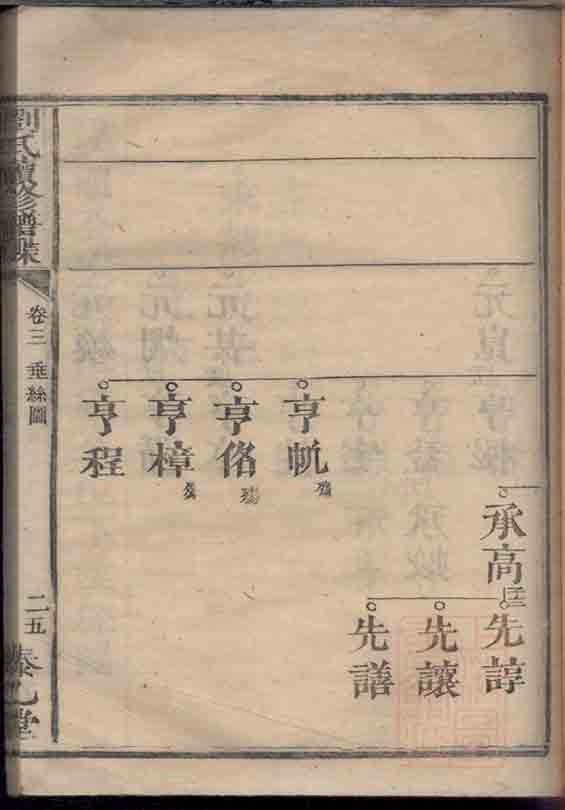 承高
三
先諄
先讓
先譜
亨帆
殤
亨佫
殤
亨樟
殤
亨程
劉氏續修譜牒
卷三 垂絲圖
二五
泰乙堂